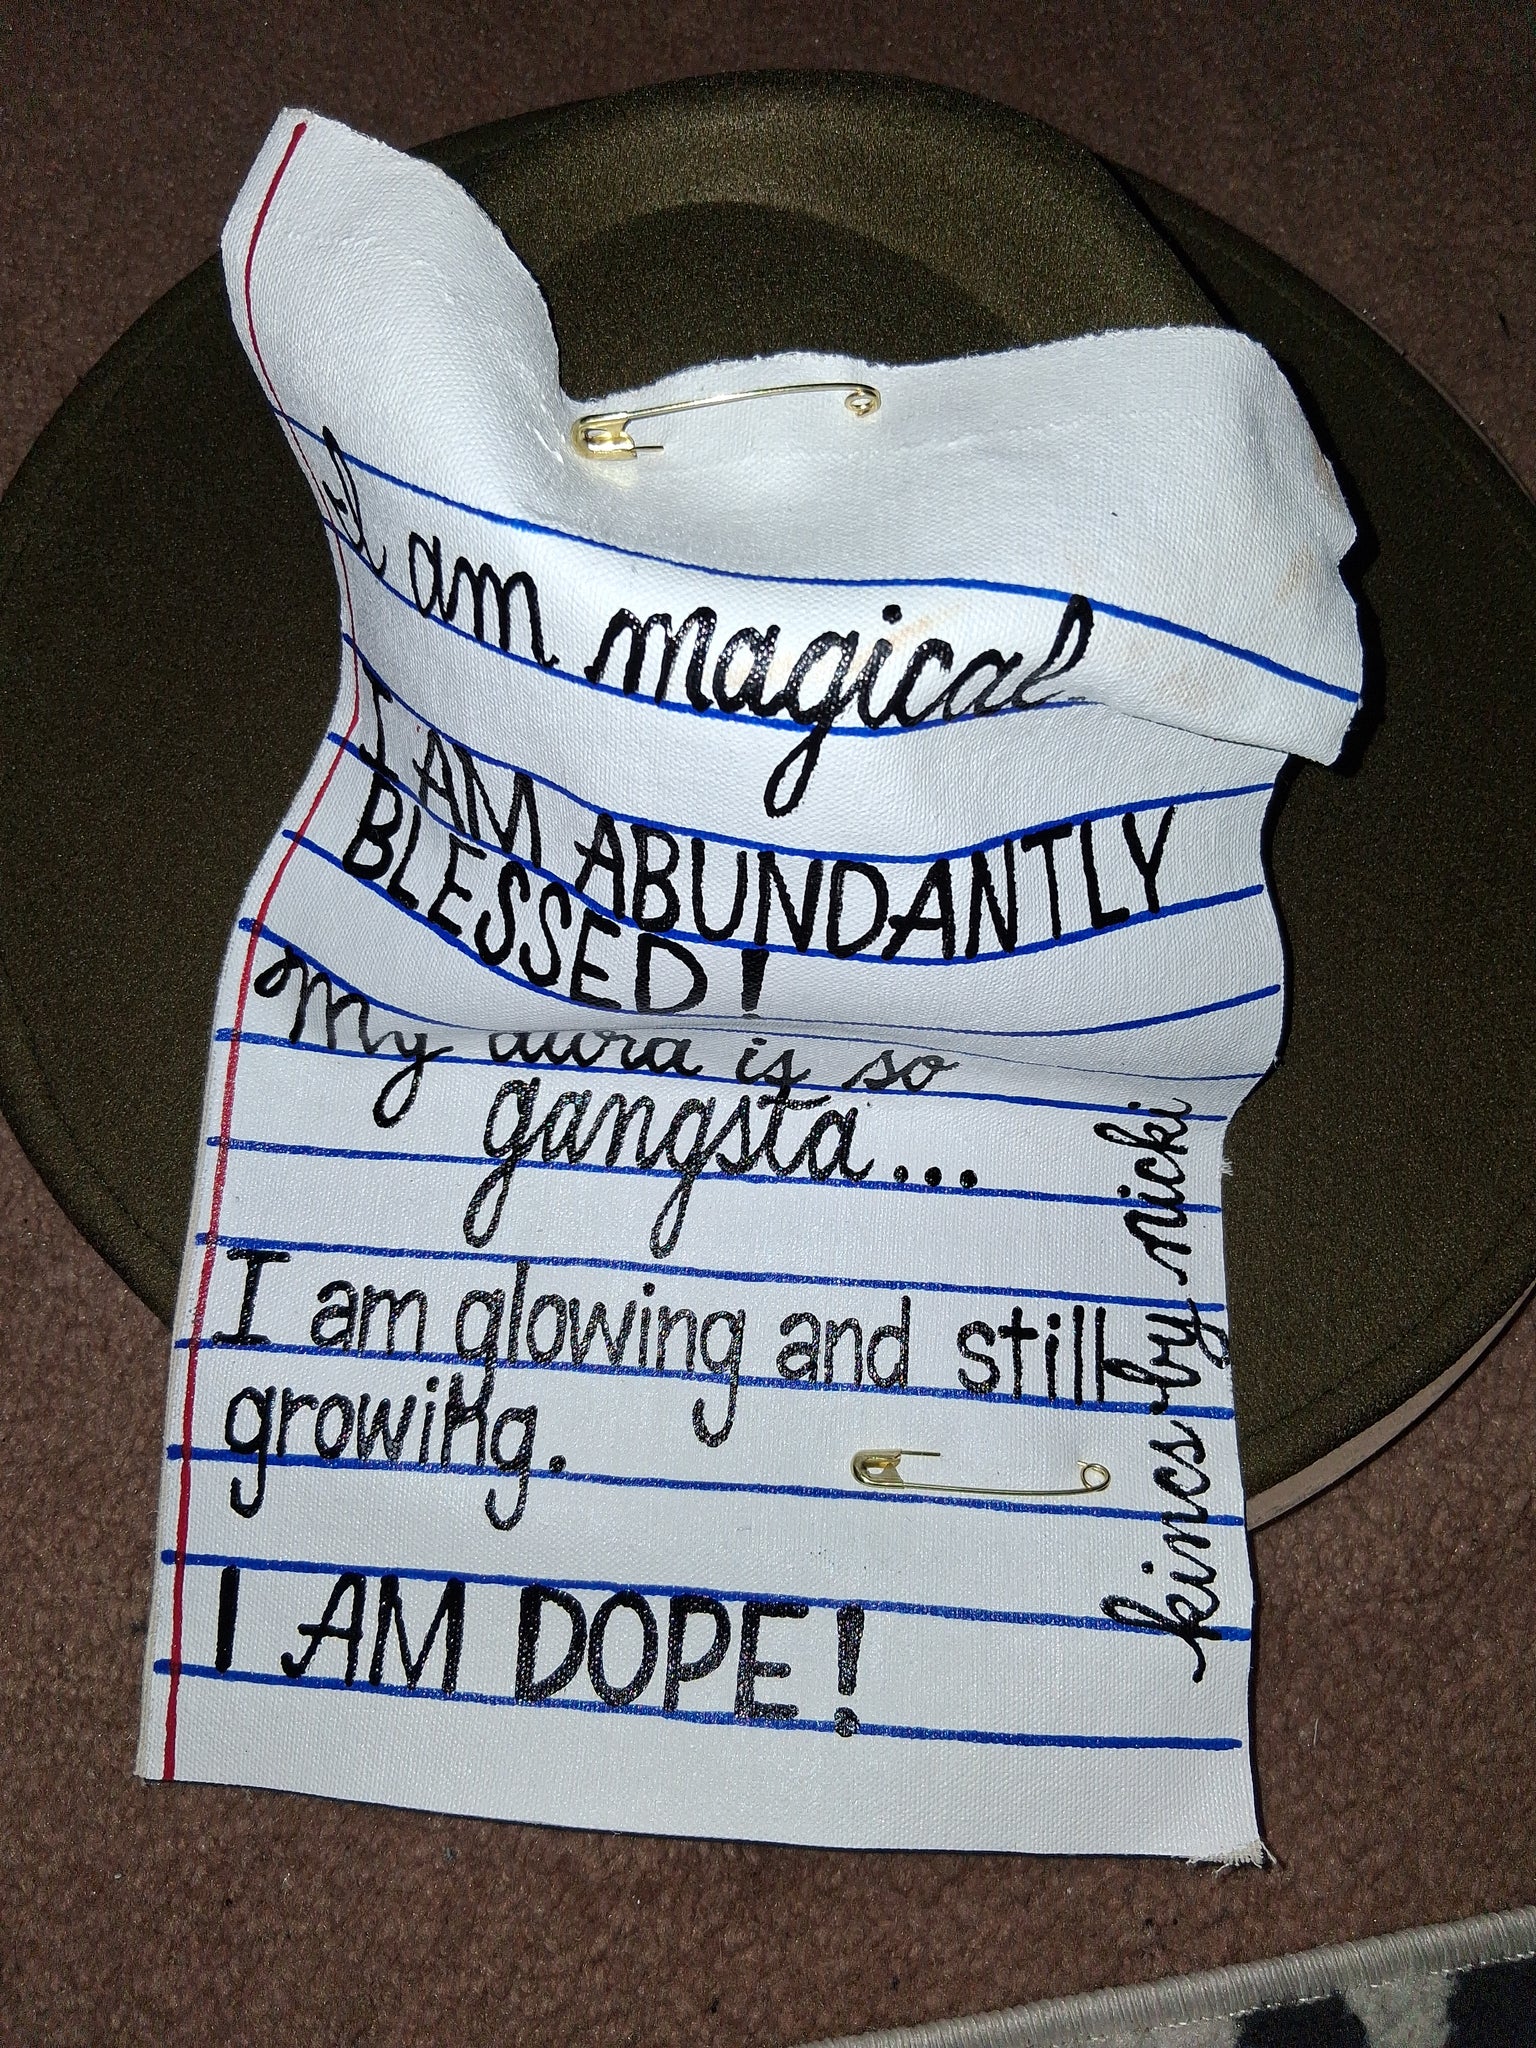 I am magical
I AM ABUNDANTLY
BLESSED!
My aura is so
gangsta...
I am glowing and still
growing.
I AM DOPE!
kincs by nicki